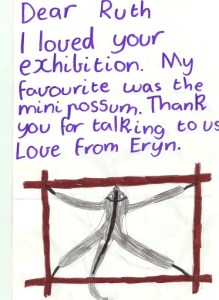 Dear Ruth
I loved your
exhibition. My
favourite was the
mini possum. Thank
you for talking to us
Love from Eryn.